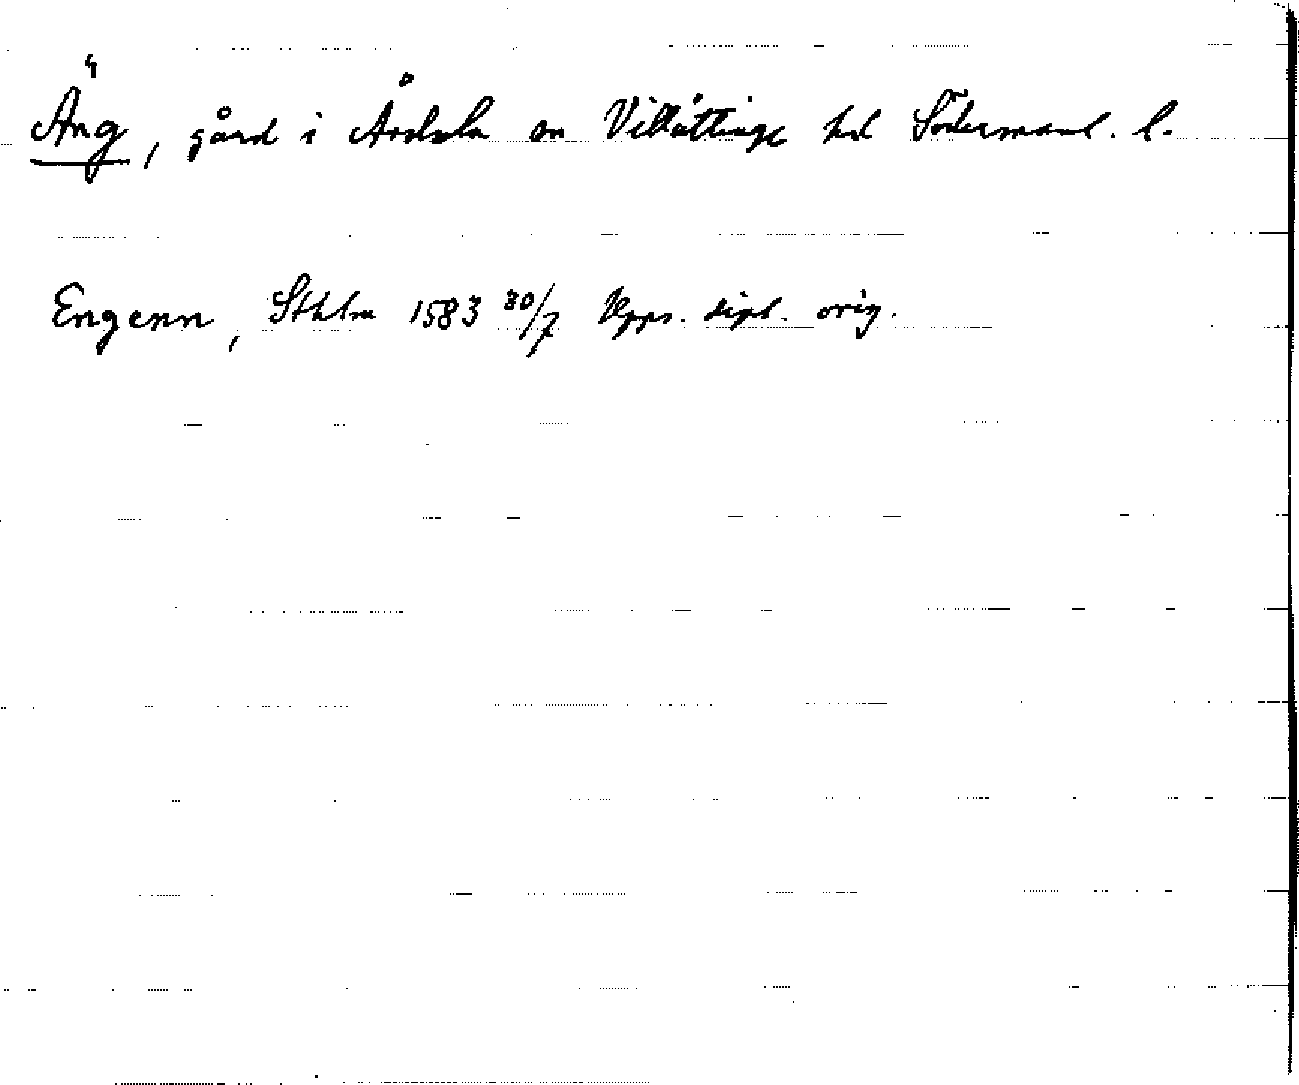 Äng, gård i Årdala sn Villåttinge hd Södermanl. l.
Engenn, Sthlm 1583 30/7 Upps. dipl. orig.